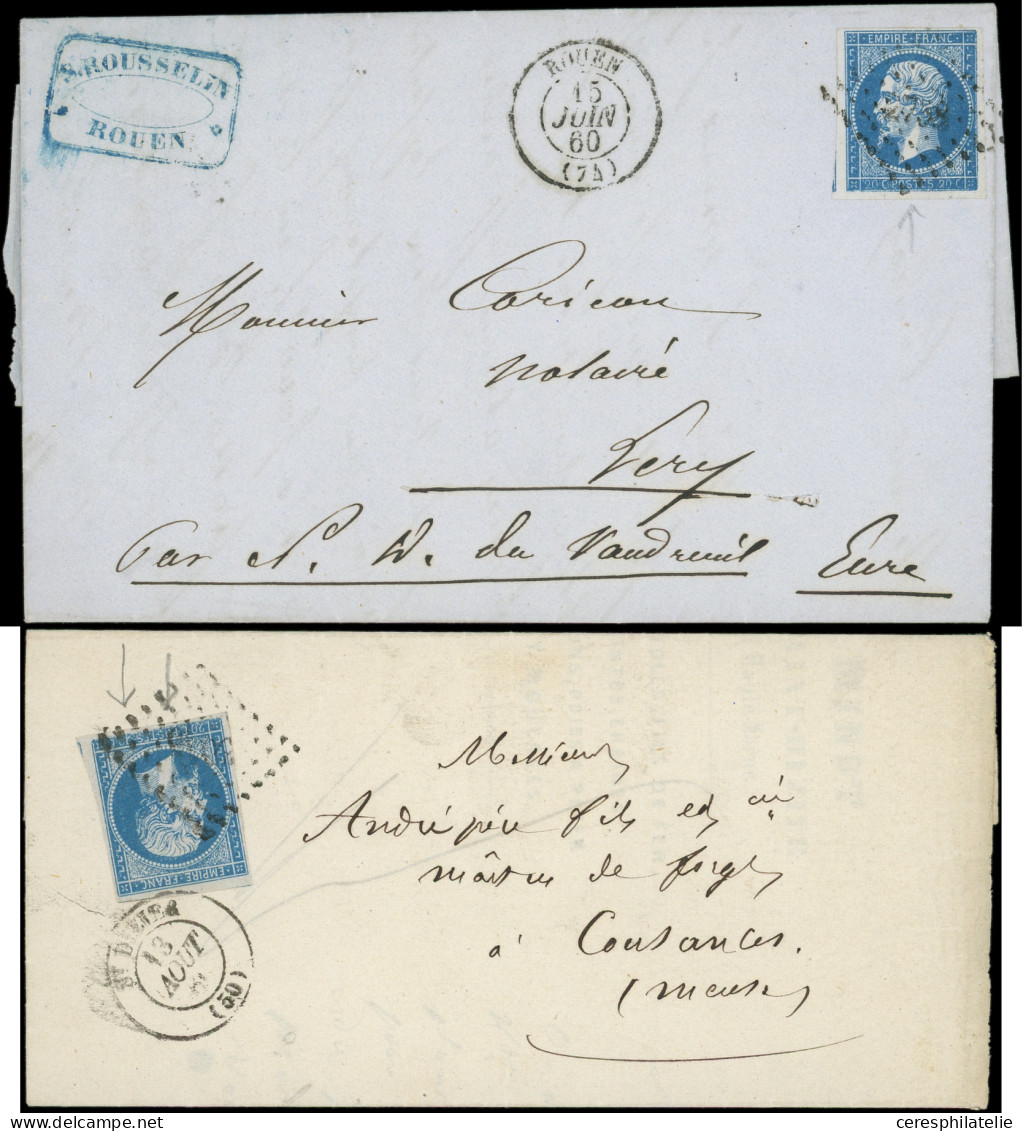 S. ROUSSELIN
ROUEN
ROUEN
15
JUIN
60
(74)
EMPIRE-FRANC
20 C POSTES 20 C
Monsieur Coricon
notaire
Lery
Par N. D. du Vaudreuil Eure
20 C POSTES 20 C
EMPIRE-FRANC
ST DIZIER
13
AOUT
(50)
Messieurs
André père fils et cie
maîtres de forges
à Cousances
(meuse)
ceresphilatelie